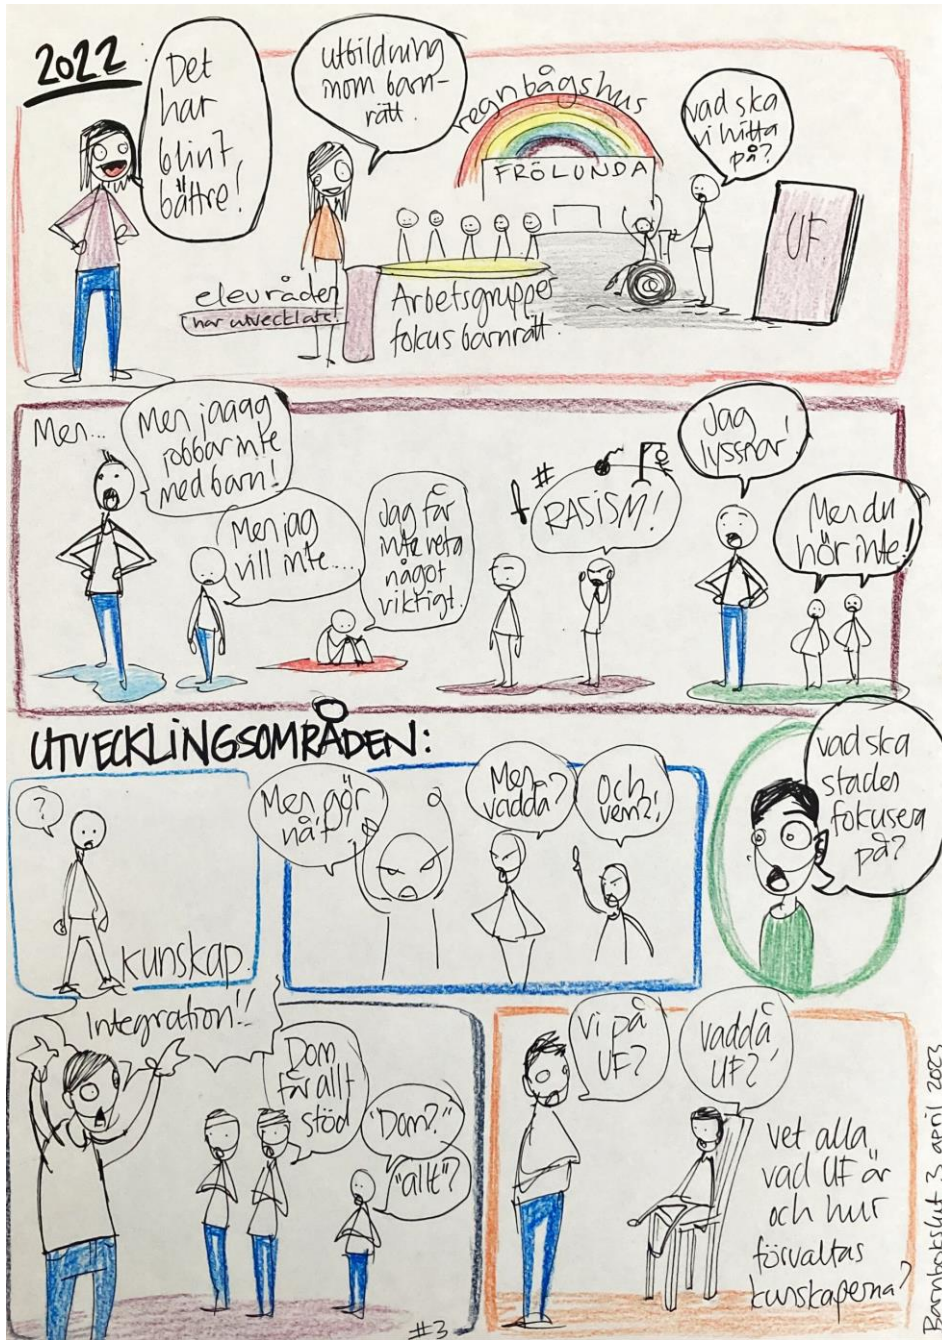 2022
Det
har
blivit
bättre!
utbildning
inom barn-
rätt.
regnbågshus
FRÖLUNDA
vad ska
vi hitta
på?
UF
elevråden
har utvecklats!
Arbetsgrupper
fokus barnrätt.
Men...
Men jaaag
jobbar inte
med barn!
Men jag
vill inte...
Jag får
inte veta
något
viktigt.
#
RASISM!
Jag
lyssnar!
Men du
hör inte!
UTVECKLINGSOMRÅDEN:
?
kunskap.
Men gör
nå't!
Men
vaddå?
Och
vem?!
vad ska
staden
fokusera
på?
Integration!!
Dom
får allt
stöd
"Dom?"
"allt"?
#3
vi på
UF?
vaddå
UF?
vet alla
vad UF är
och hur
förvaltas
kunskaperna?
Barnbokslut 3. april 2023